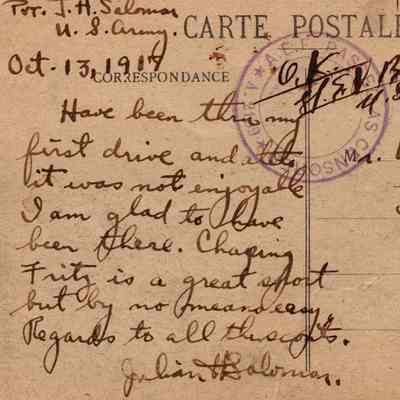 Pvr. J. H. Salomon
U. S. Army.
CARTE POSTALE
Oct. 13, 1917
CORRESPONDANCE
O.K.
A.E.F. PASSED AS CENSORED
Have been thru my
first drive and altho
it was not enjoyable
I am glad to have
been there. Chasing
Fritz is a great sport
but by no means easy.
Regards to all the scouts.
Julian H Salomon.
Mr.